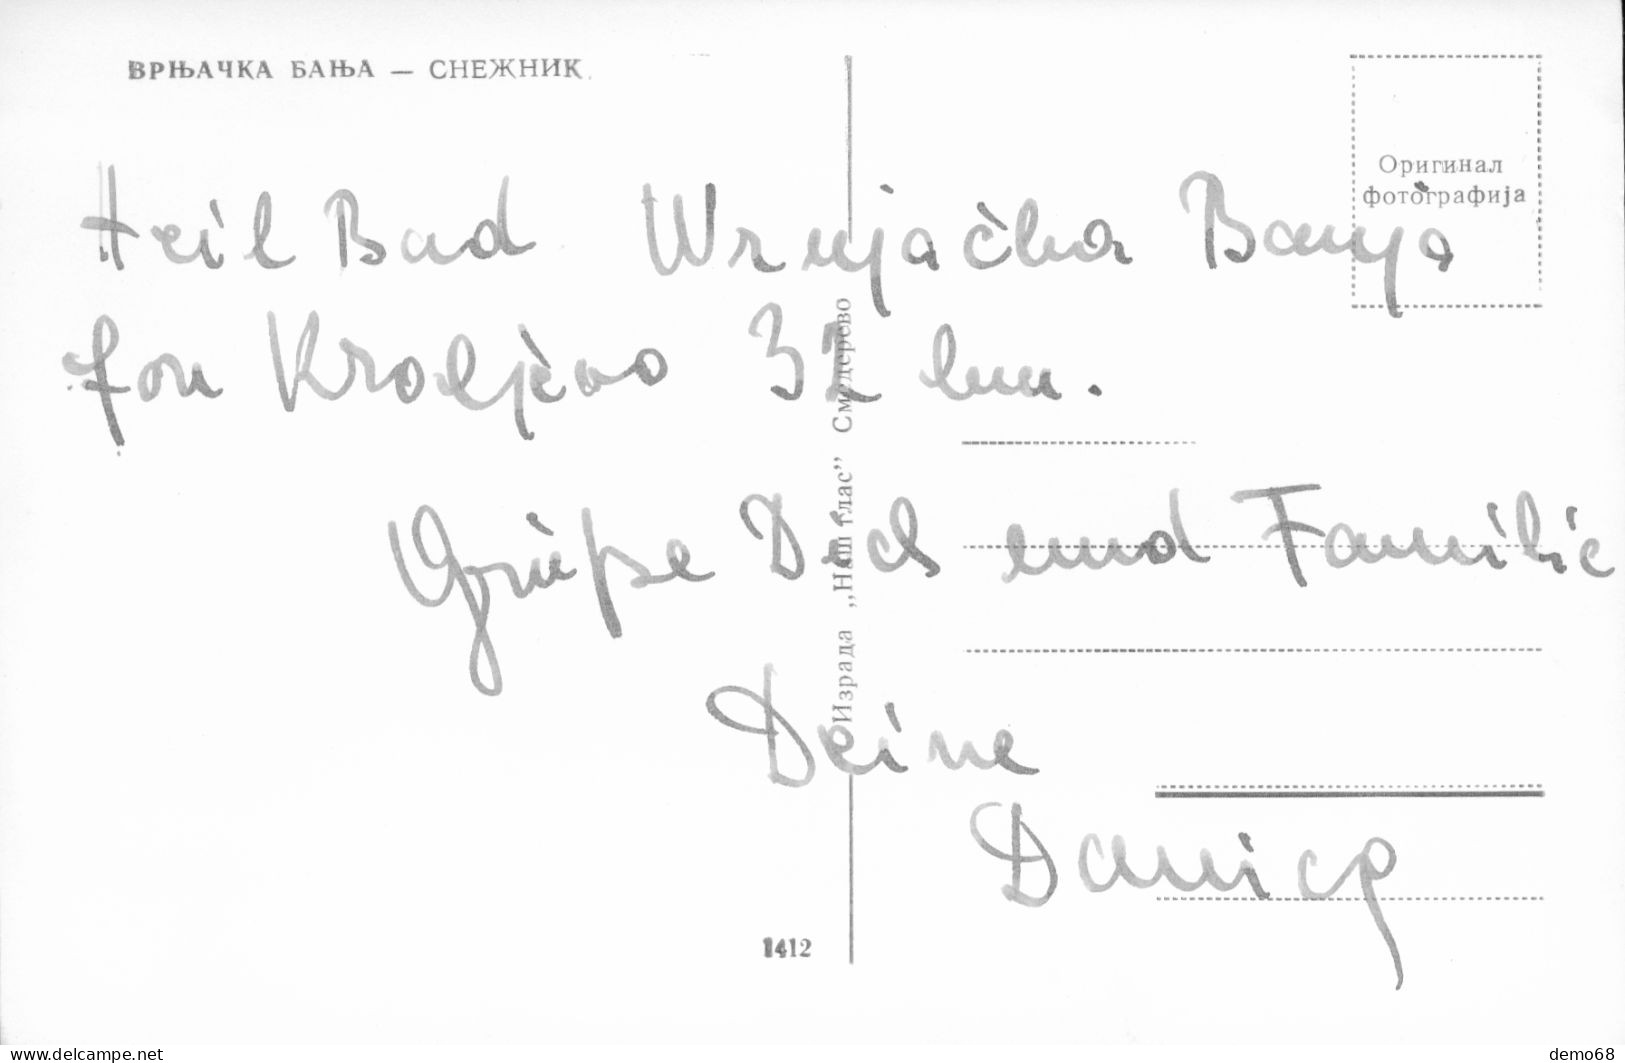 ВРЊАЧКА БАЊА — СНЕЖНИК.
Оригинал
фотографија
Heil Bad Wrnjačka Banja
fon Kraljevo 32 km.
Grüße Dich und Familie
Deine
Danica
Израда „Наш глас” Смедерево
1412
www.delcampe.net
demo68